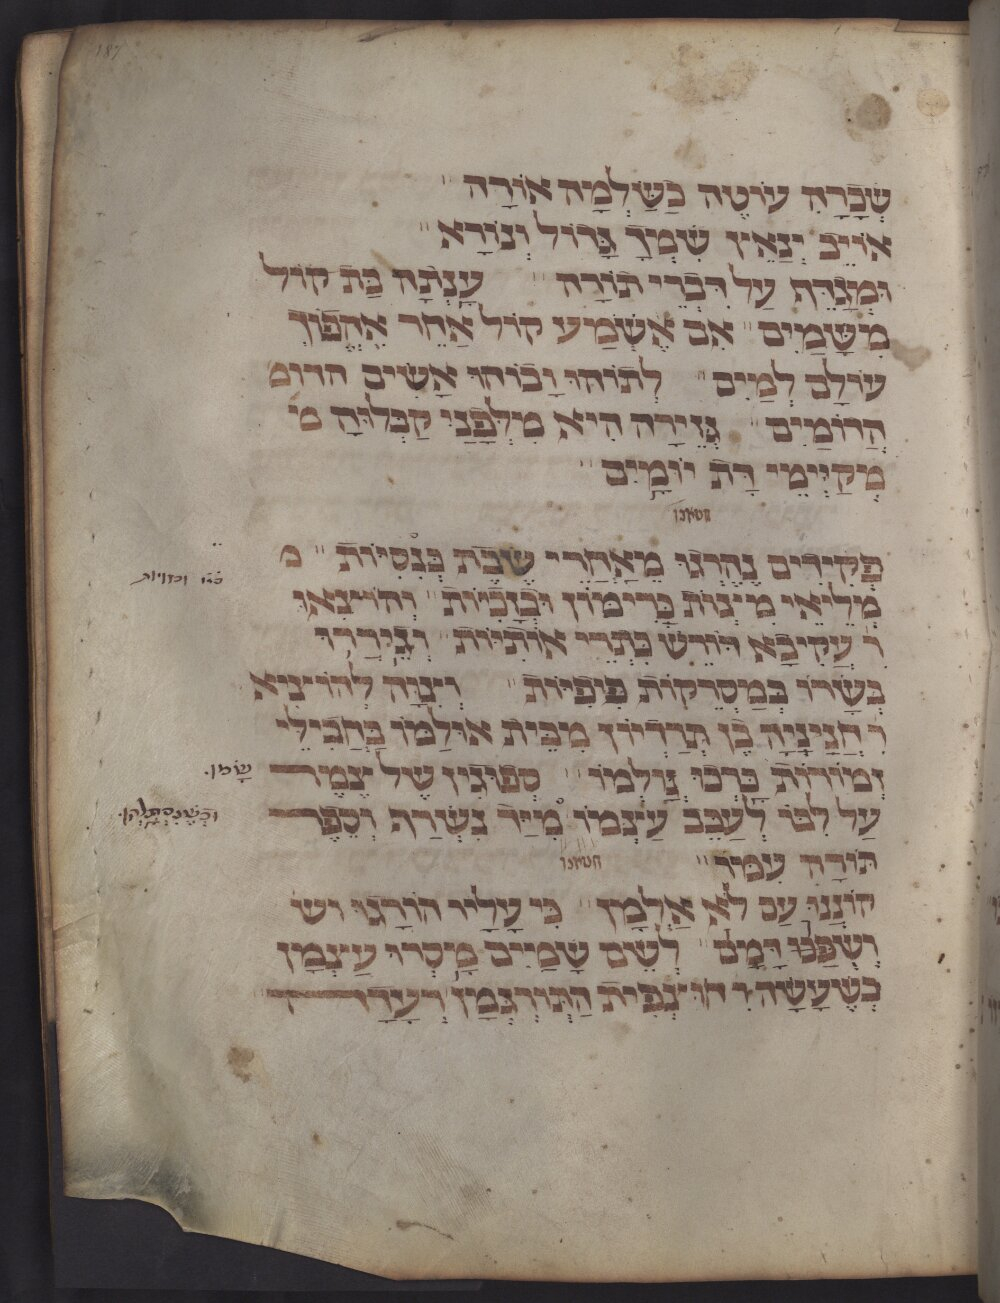 187
שְׂבָרָהּ עוֹטֶה כַּשַּׂלְמָה אוֹרָה״
אוֹיֵב יְנָאֵץ שִׁמְךָ גָּדוֹל וְנוֹרָא״
וּמְגַדֵּף עַל דִּבְרֵי תוֹרָה״ עָנְתָה בַּת קוֹל
מִשָּׁמַיִם״ אִם אֶשְׁמַע קוֹל אַחֵר אֶהֱפוֹךְ
עוֹלָם לְמַיִם״ לְתוֹהוּ וָבוֹהוּ אָשִׁים הדום
הֲדוֹמַיִם״ גְּזֵירָה הִיא מִלְּפָנַי קַבְּלוּהָ מ׳
מְקַיְּימֵי דָּת יוֹמָיִם״
חטאנו
פְּקִידִים נֶהֶרְגוּ מֵאַחֲרֵי שֶׁבֶת בְּנַסִּיּוֹת״ מ׳
מְלֵיאֵי מִצְוֹת כָּרִימּוֹן וּכְזָוִיּוֹת״ וְהוֹצִיאוּ
ר׳ עֲקִיבָא דּוֹרֵשׁ כִּתְרֵי אוֹתִיּוֹת״ וְסָרְקוּ
בְּשָׂרוֹ בְּמַסְרֵקוֹת פִּיפִיּוֹת״ וְצִוָּה לְהוֹצִיא
ר׳ חֲנַנְיָה בֶן תְּרַדְיוֹן מִבֵּית אוּלַמּוֹ בַּחֲבִילֵי
זְמוֹרוֹת בֵּרְכוּ גָּלְמוֹ״ סְפוֹגִין שֶׁל צֶמֶר
עַל לִבּוֹ לְעַכֵּב עַצְמוֹ מִיַּד נִשְׂרַף וְסֵפֶר
תּוֹרָה עִמּוֹ״
חטאנו
קוֹנְנוּ עַם לֹא אַלְמָן״ כִּי עָלָיו הוֹרָגוּ וש
וְשֻׁפַּךְ דָּמָם״ לְשֵׁם שָׁמַיִם מָסְרוּ עַצְמָן
כְּשֶׁעָשָׂה ר׳ חוּצְפִּית הַתּוּרְגְּמָן
וכזויות
שָׂמוּ.